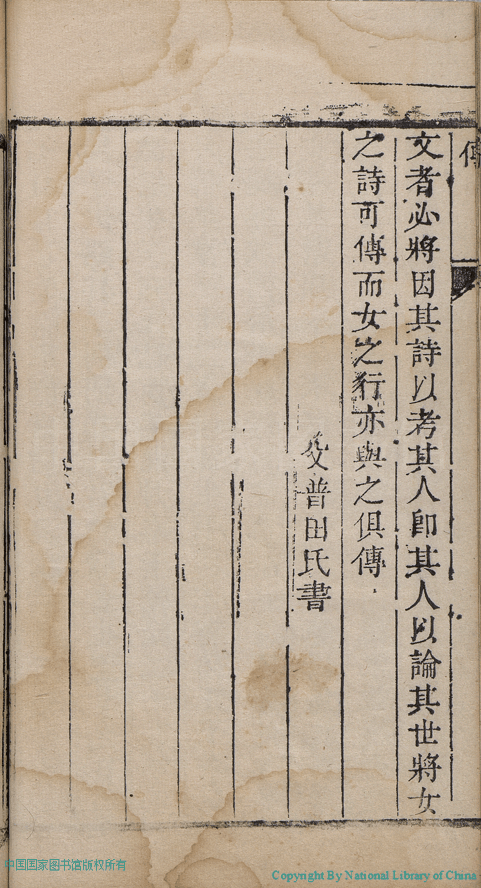 傳
文者必將因其詩以考其人卽其人以論其世將女
之詩可傳而女之行亦與之俱傳
父普田氏書
中国国家图书馆版权所有
Copyright By National Library of China